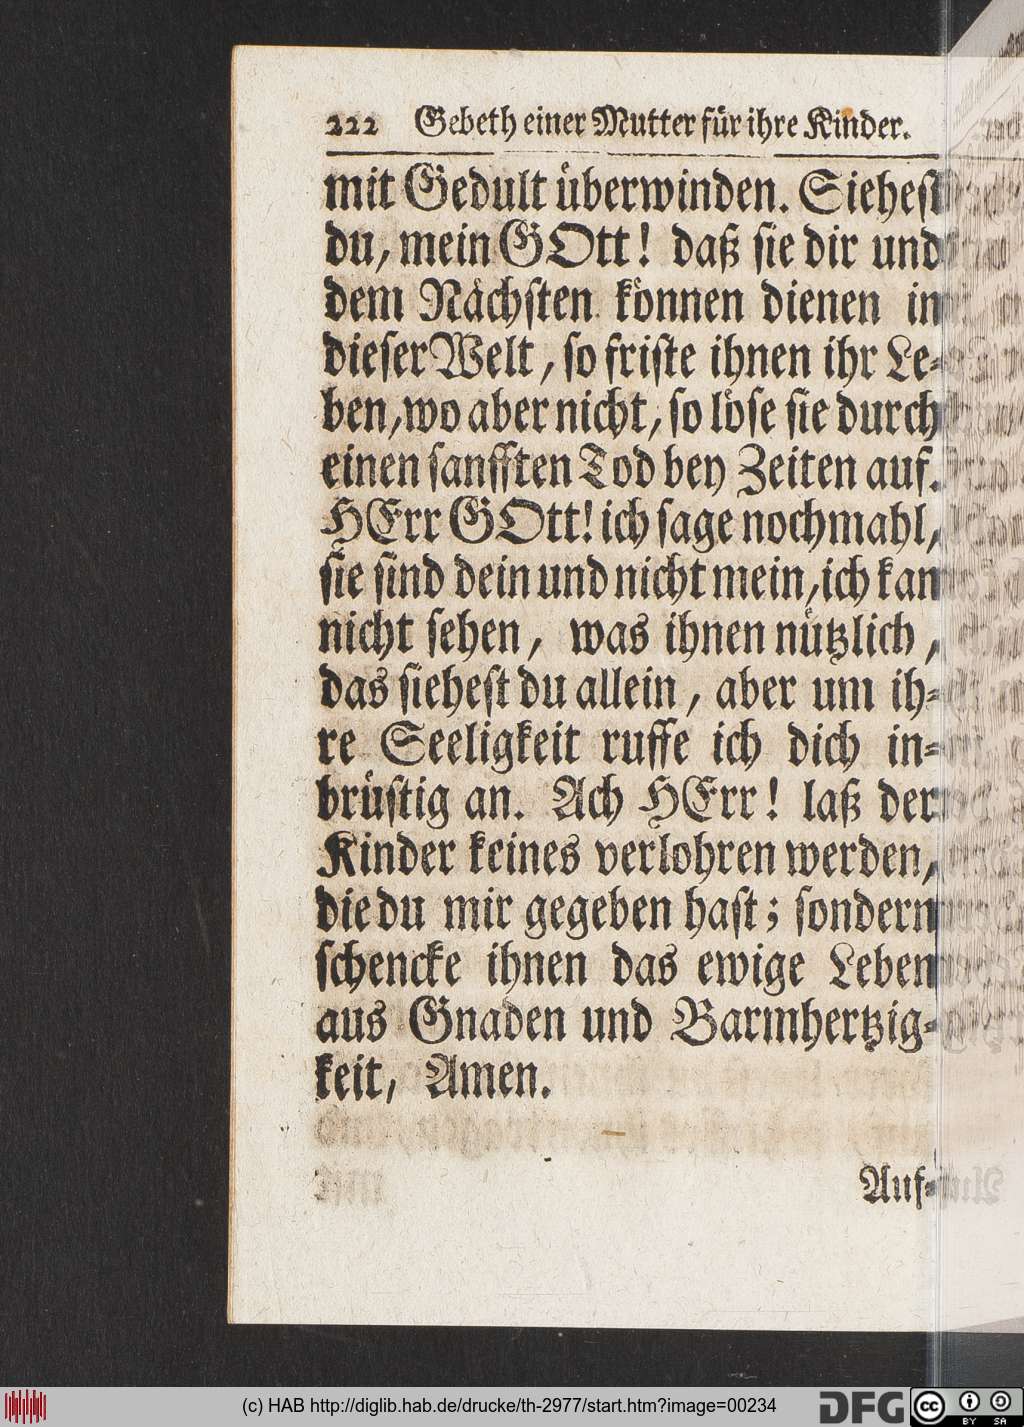 222 Gebeth einer Mutter für ihre Kinder.
mit Gedult uͤberwinden. Sieheſt
du, mein GOtt! daß ſie dir und
dem Naͤchſten koͤnnen dienen in
dieſer Welt, ſo friſte ihnen ihr Le-
ben, wo aber nicht, ſo loͤſe ſie durch
einen ſanfften Tod bey Zeiten auf.
HErr GOtt! ich ſage nochmahl,
ſie ſind dein und nicht mein, ich kan
nicht ſehen, was ihnen nuͤtzlich,
das ſieheſt du allein, aber um ih-
re Seeligkeit ruffe ich dich in-
bruͤſtig an. Ach HErr! laß der
Kinder keines verlohren werden,
die du mir gegeben haſt; ſondern
ſchencke ihnen das ewige Leben
aus Gnaden und Barmhertzig-
keit, Amen.
Auf-
(c) HAB http://diglib.hab.de/drucke/th-2977/start.htm?image=00234
DFG
cc
BY SA